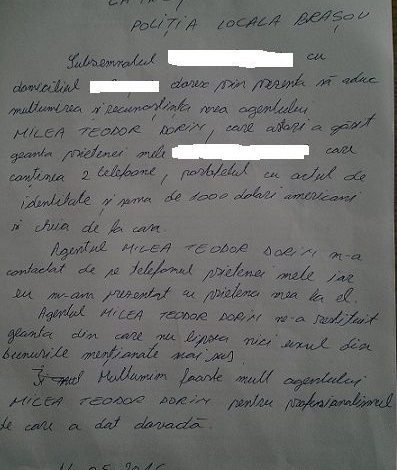 POLIȚIA LOCALA BRAȘOV
Subsemnatul cu
domiciliul doresc prin prezenta să aduc
multumirea și recunostința mea agentului
MILEA TEODOR DORIN, care astazi a găsit
geanta prietenei mele care
continea 2 telefoane, portofelul cu actul de
identitate și suma de 1000 dolari americani
si cheia de la casa.
Agentul MILEA TEODOR DORIN m-a
contactat de pe telefonul prietenei mele iar
eu m-am prezentat cu prietena mea la el.
Agentul MILEA TEODOR DORIN ne-a restituit
geanta din care nu lipsea nici unul din
bunurile menționate mai sus.
Multumim foarte mult agentului
MILEA TEODOR DORIN pentru profesionalismul
de care a dat dovadă.